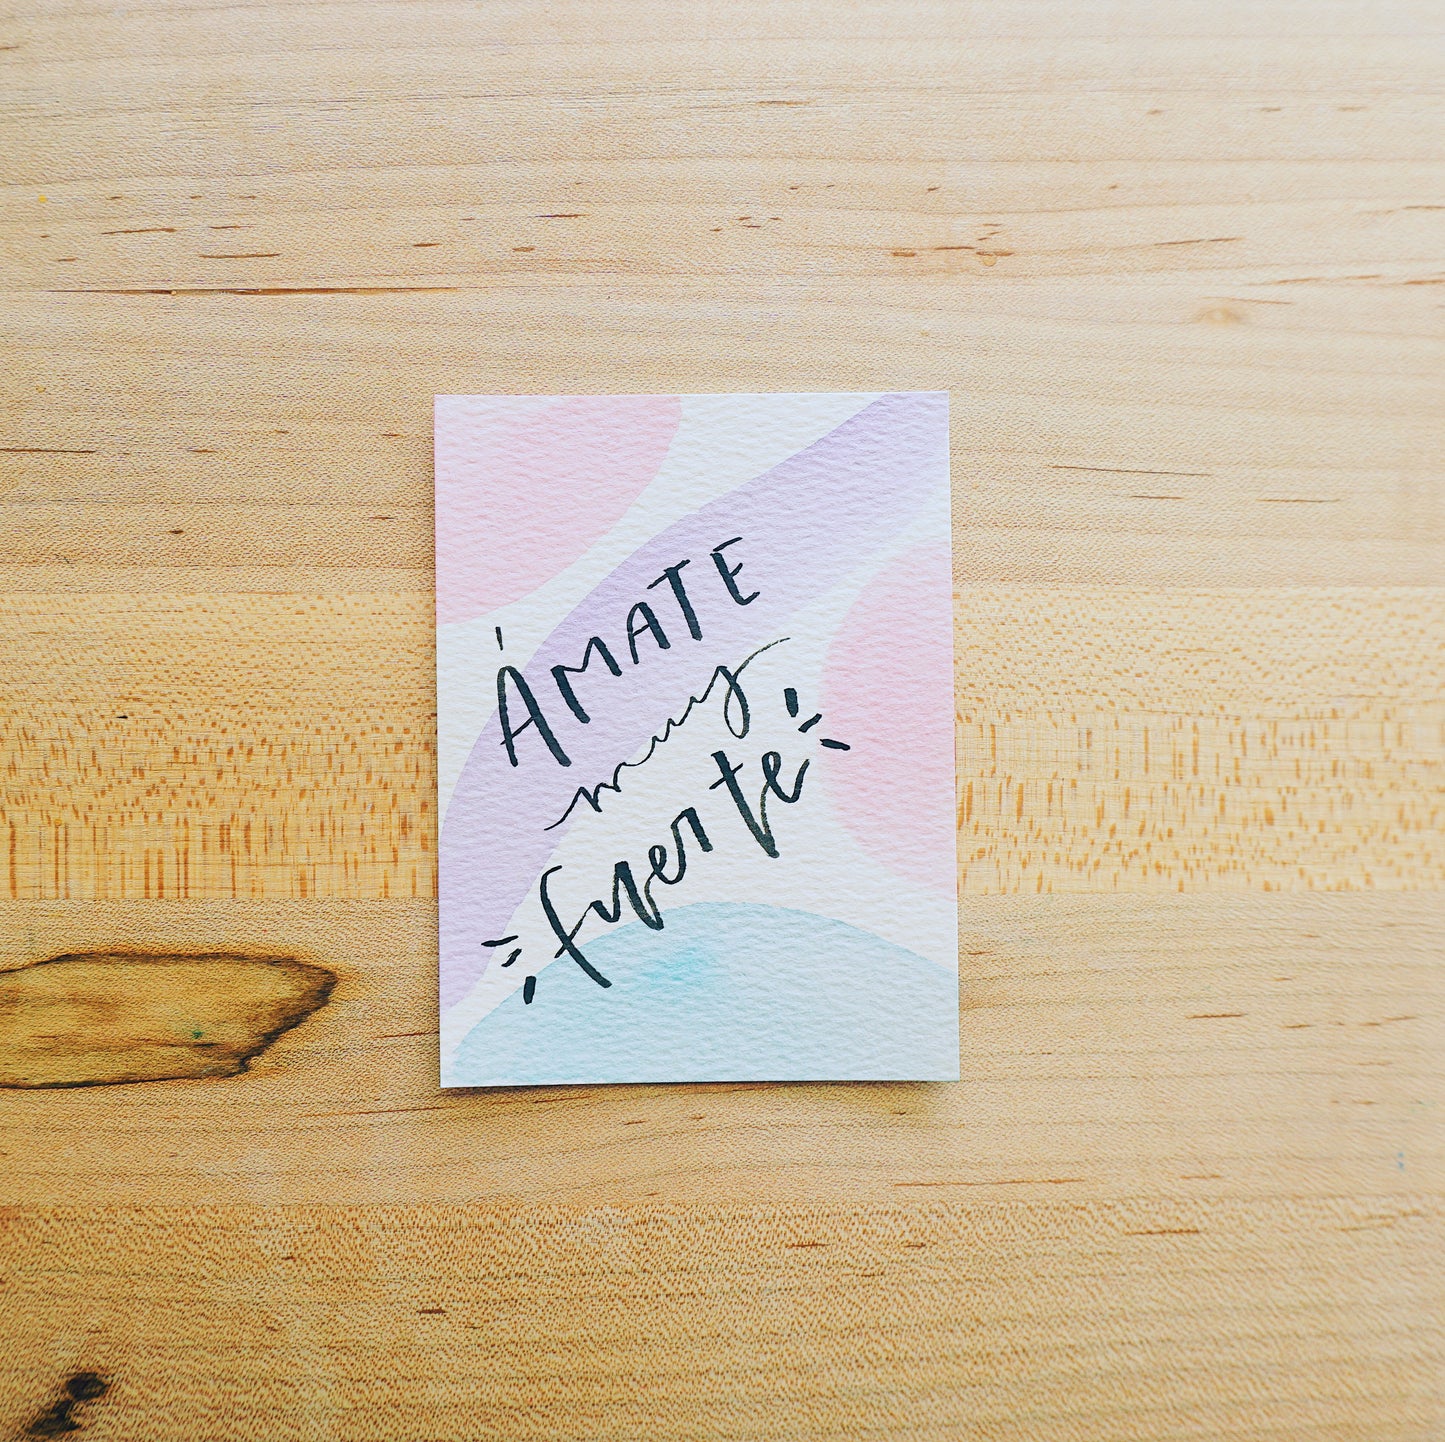 ÁMATE
muy
fuerte